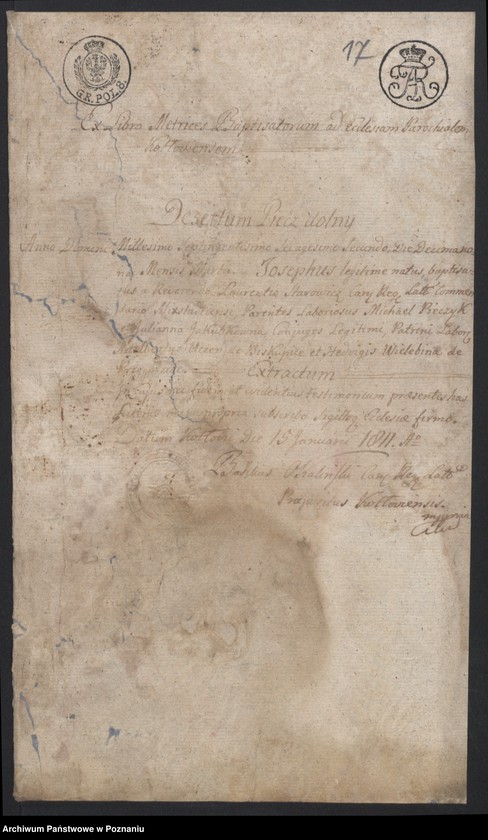 17
GR. POL. 8
Ex Libro Metrices Baptisatorum ad Ecclesiam Parochialem
Kottowensem
Desertum Piecz dolny
Anno Domini Millesimo Septingentesimo Sexagesimo Secundo, Die Decima no
na Mensis Josephus legitime natus baptisa-
tus a Reverendo Laurentio Starowicz Can Reg Latt Commen
dario Mixstatensi, Parentes Laboriosus Michael Pieczyk
Julianna Jakubkowna Conjuges Legitimi, Patrini Labor
de Biskupice et Hedvigis Wielebina de
Extractum
fidem et evidentius testimonium præsentes has
manu propria subscribo Sigillo Ecclesiæ firmo.
Datum Kotłowi Die 15 Januarii 1811 Ao
Can Reg Latt
Præpositus Kottowiensis.
mppria
Archiwum Państwowe w Poznaniu